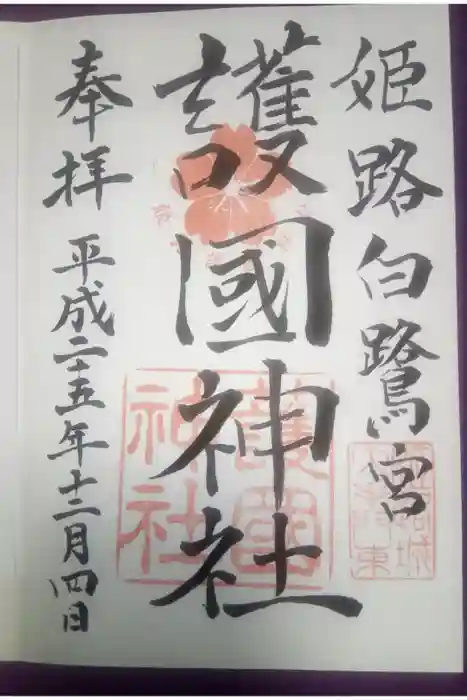 姫路白鷺宮
護國神社
奉拝 平成二十五年十二月四日
護國
神社